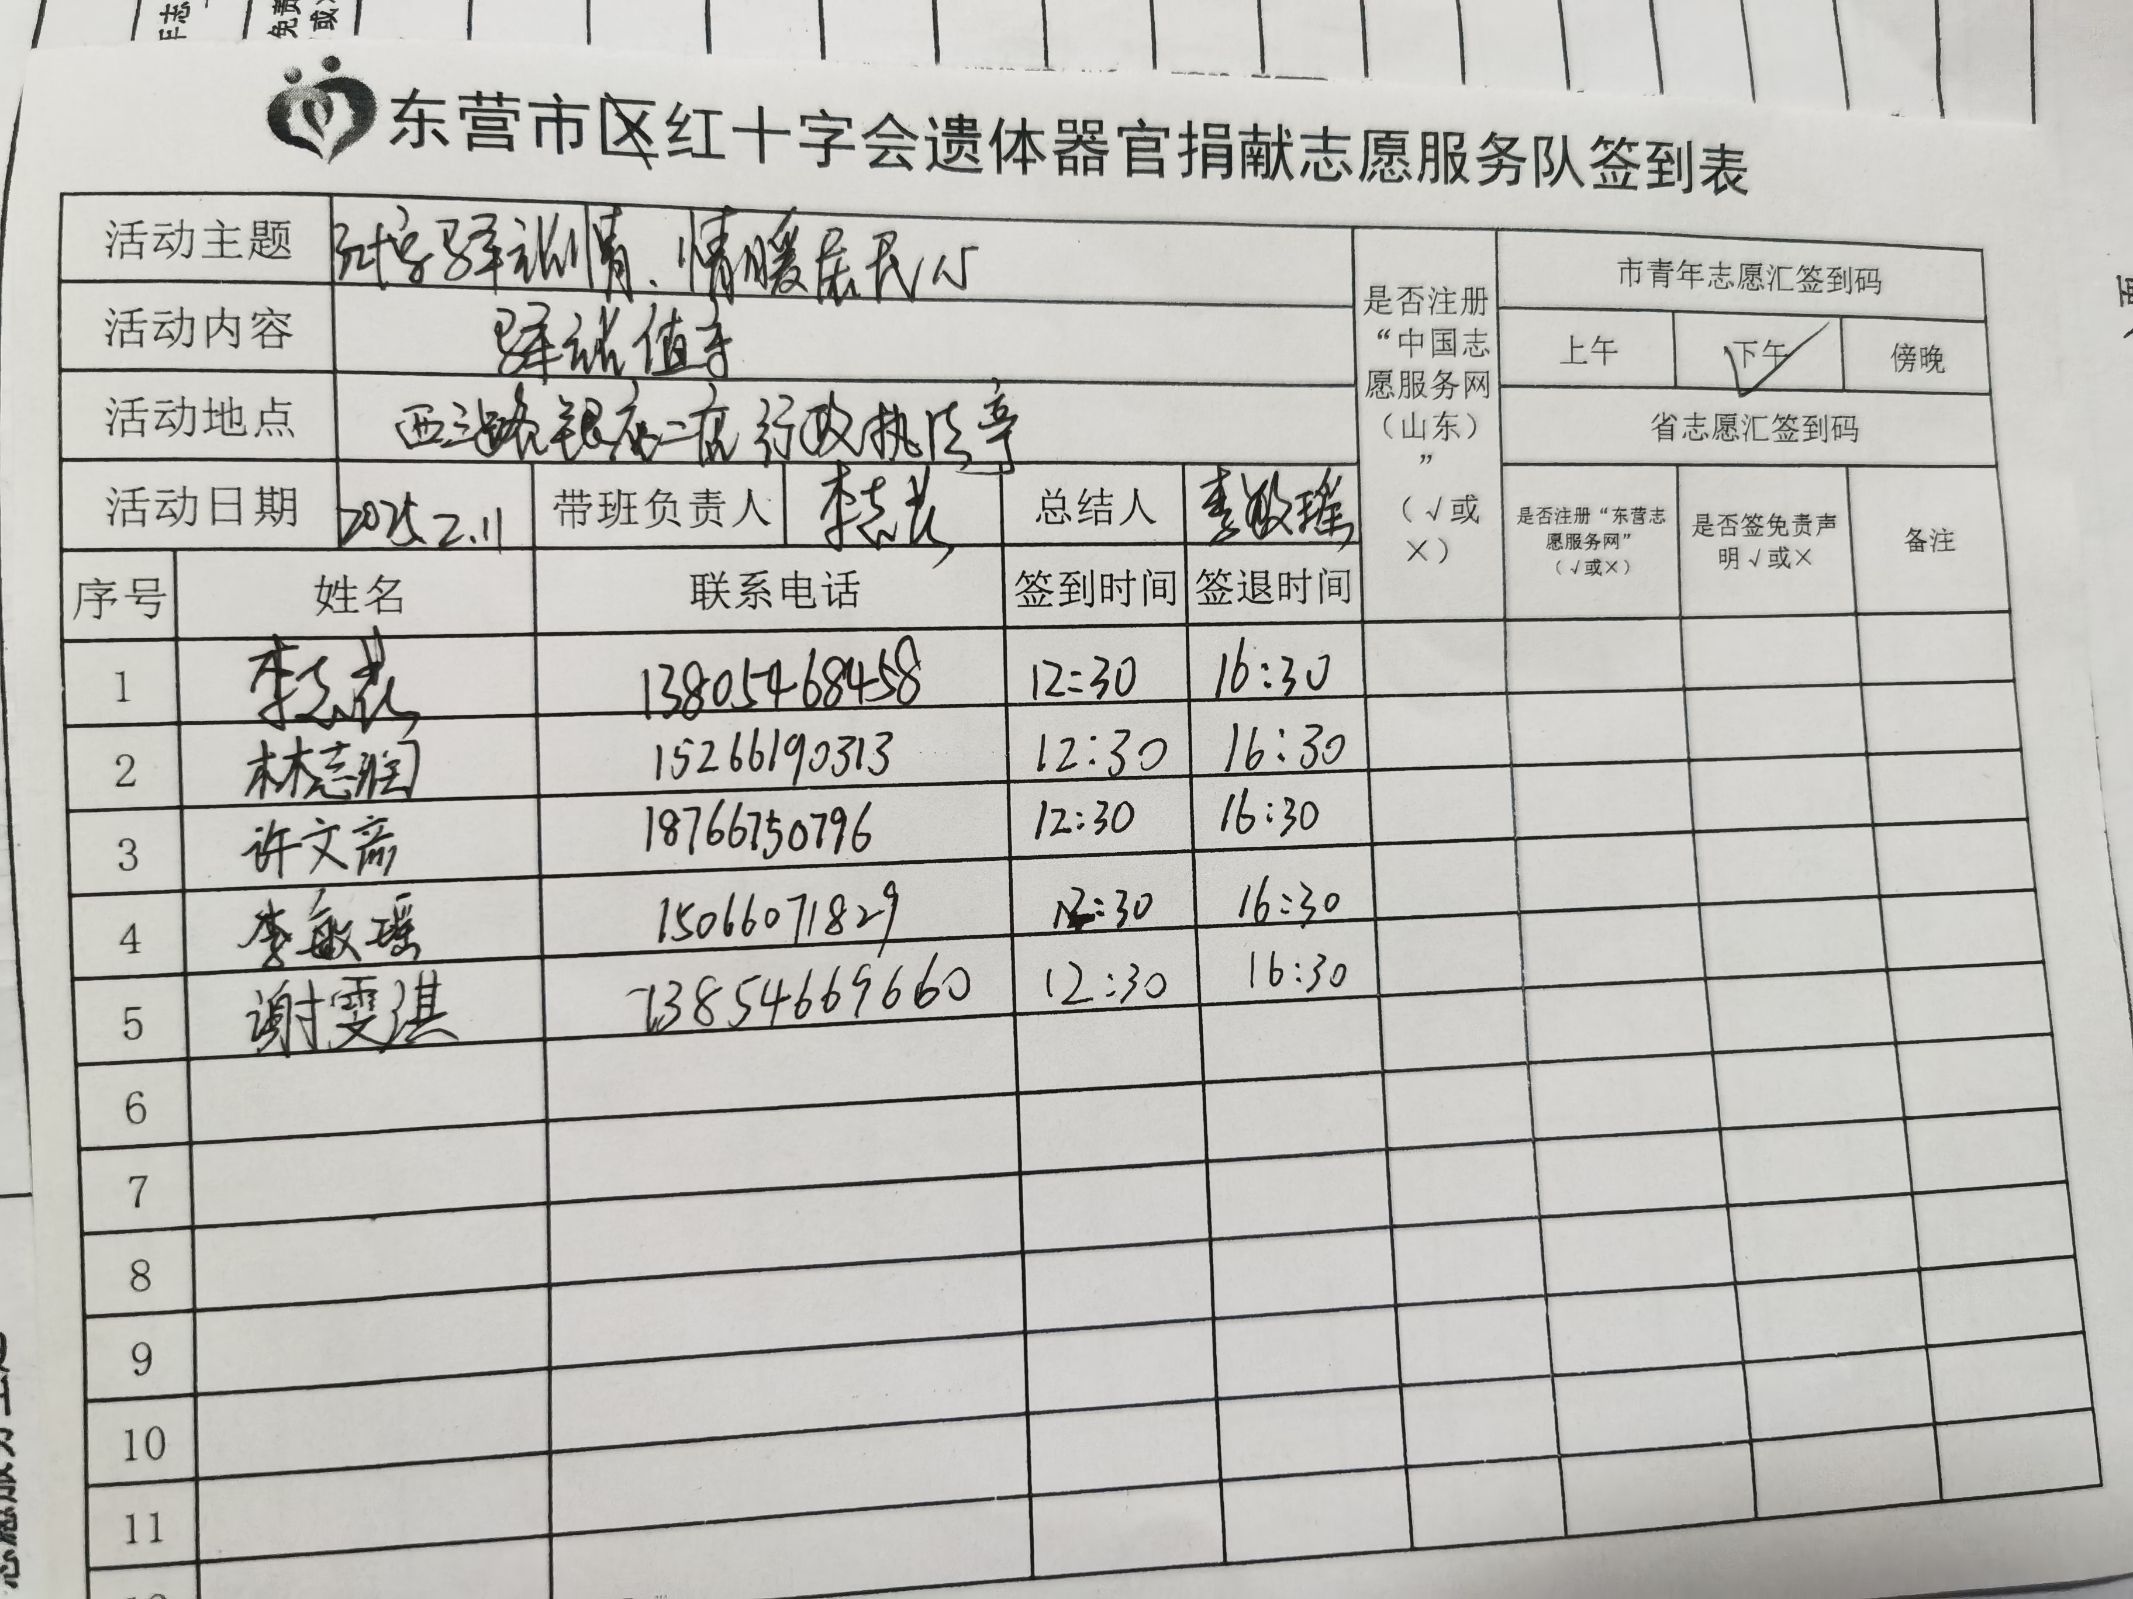 东营市区红十字会遗体器官捐献志愿服务队签到表
活动主题 红十字驿站情、情暖居民心
活动内容 驿站值守
活动地点 西三路银座二店行政执法亭
活动日期 2025.2.11 带班负责人 总结人 李敏瑶
是否注册“中国志愿服务网（山东）”（√或×）
市青年志愿汇签到码
上午 下午 √ 傍晚
省志愿汇签到码
是否注册“东营志愿服务网”（√或×） 是否签免责声明√或× 备注
序号 姓名 联系电话 签到时间 签退时间
1 13805468458 12:30 16:30
2 林志润 15266190313 12:30 16:30
3 许文斋 18766750796 12:30 16:30
4 李敏瑶 15066071829 12:30 16:30
5 谢雯淇 13854669660 12:30 16:30
6
7
8
9
10
11